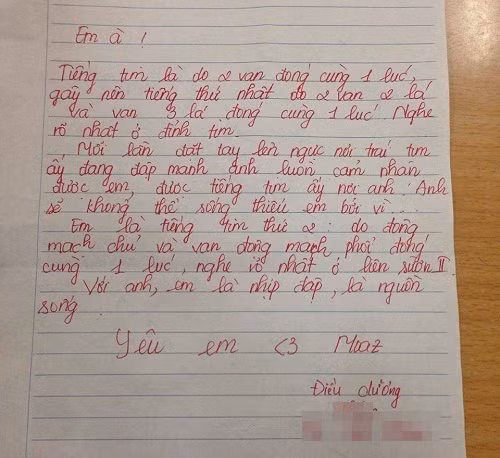 Em à !
Tiếng tim là do 2 van đóng cùng 1 lúc,
gây nên tiếng thứ nhất do 2 van 2 lá
và van 3 lá đóng cùng 1 lúc. Nghe
rõ nhất ở đỉnh tim.
Mỗi lần đặt tay lên ngực nơi trái tim
ấy đang đập mạnh anh luôn cảm nhận
được em, được tiếng tim ấy nói anh: Anh
sẽ không thể sống thiếu em bởi vì.
Em là tiếng tim thứ 2: do động
mạch chủ và van động mạch phổi đóng
cùng 1 lúc, nghe rõ nhất ở liên sườn II.
Với anh, em là nhịp đập, là nguồn
sống.
Yêu em <3 Moaz
Điều dưỡng